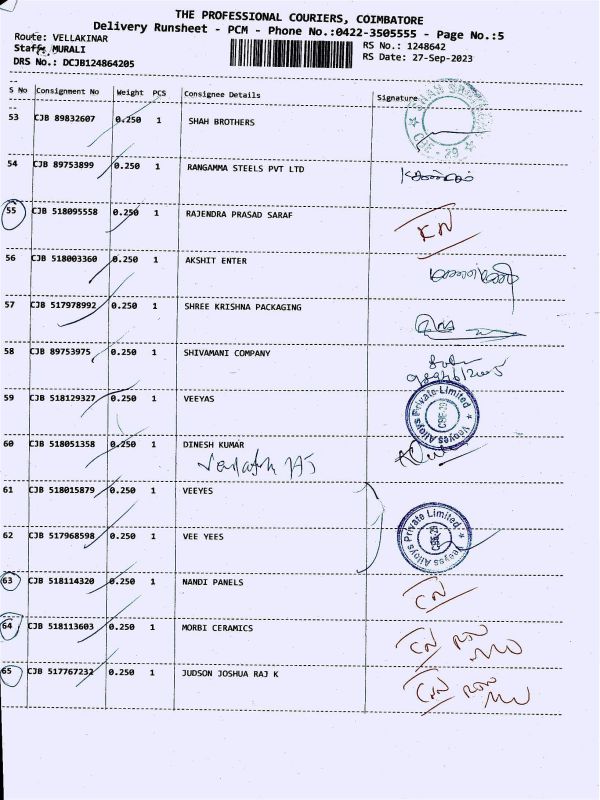 THE PROFESSIONAL COURIERS, COIMBATORE
Delivery Runsheet - PCM - Phone No.:0422-3505555 - Page No.:5
Route: VELLAKINAR
RS No.: 1248642
Staff: MURALI
RS Date: 27-Sep-2023
DRS No.: DCJB124864205
S No Consignment No Weight PCS Consignee Details Signature
53 CJB 89832607 0.250 1 SHAH BROTHERS
SHAH BROTHERS ★ CBE - 29 ★
54 CJB 89753899 0.250 1 RANGAMMA STEELS PVT LTD
55 CJB 518095558 0.250 1 RAJENDRA PRASAD SARAF
56 CJB 518003360 0.250 1 AKSHIT ENTER
57 CJB 517978992 0.250 1 SHREE KRISHNA PACKAGING
58 CJB 89753975 0.250 1 SHIVAMANI COMPANY
59 CJB 518129327 0.250 1 VEEYAS
Veeyes Alloys Private Limited ★ CBE-29
60 CJB 518051358 0.250 1 DINESH KUMAR
61 CJB 518015879 0.250 1 VEEYES
62 CJB 517968598 0.250 1 VEE YEES
Veeyes Alloys Private Limited ★ CBE-29
63 CJB 518114320 0.250 1 NANDI PANELS
64 CJB 518113603 0.250 1 MORBI CERAMICS
65 CJB 517767232 0.250 1 JUDSON JOSHUA RAJ K